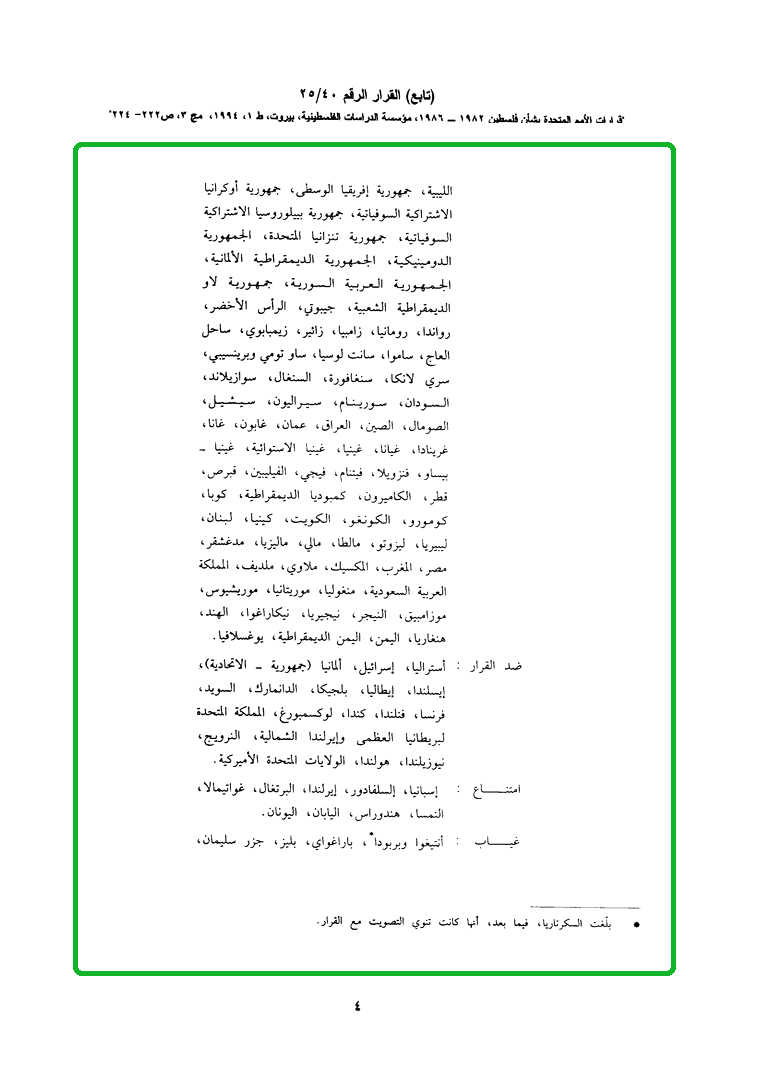 (تابع) القرار الرقم ٢٥/٤٠
"قرارات الأمم المتحدة بشأن فلسطين ١٩٨٢ – ١٩٨٦، مؤسسة الدراسات الفلسطينية، بيروت، ط ١، ١٩٩٤، مج ٣، ص٢٢٢- ٢٢٤"
الليبية، جمهورية إفريقيا الوسطى، جمهورية أوكرانيا
الاشتراكية السوفياتية، جمهورية بييلوروسيا الاشتراكية
السوفياتية، جمهورية تنزانيا المتحدة، الجمهورية
الدومينيكية، الجمهورية الديمقراطية الألمانية،
الجمهورية العربية السورية، جمهورية لاو
الديمقراطية الشعبية، جيبوتي، الرأس الأخضر،
رواندا، رومانيا، زامبيا، زائير، زيمبابوي، ساحل
العاج، ساموا، سانت لوسيا، ساو تومي وبرينسيبي،
سري لانكا، سنغافورة، السنغال، سوازيلاند،
السودان، سورينام، سيراليون، سيشيل،
الصومال، الصين، العراق، عمان، غابون، غانا،
غرينادا، غيانا، غينيا، غينيا الاستوائية، غينيا –
بيساو، فنزويلا، فيتنام، فيجي، الفيليبين، قبرص،
قطر، الكاميرون، كمبوديا الديمقراطية، كوبا،
كومورو، الكونغو، الكويت، كينيا، لبنان،
ليبيريا، ليزوتو، مالطا، مالي، ماليزيا، مدغشقر،
مصر، المغرب، المكسيك، ملاوي، ملديف، المملكة
العربية السعودية، منغوليا، موريتانيا، موريشيوس،
موزامبيق، النيجر، نيجيريا، نيكاراغوا، الهند،
هنغاريا، اليمن، اليمن الديمقراطية، يوغسلافيا.
ضد القرار : أستراليا، إسرائيل، ألمانيا (جمهورية – الاتحادية)،
إيسلندا، إيطاليا، بلجيكا، الدانمارك، السويد،
فرنسا، فنلندا، كندا، لوكسمبورغ، المملكة المتحدة
لبريطانيا العظمى وإيرلندا الشمالية، النرويج،
نيوزيلندا، هولندا، الولايات المتحدة الأميركية.
امتنـــاع : إسبانيا، إلسلفادور، إيرلندا، البرتغال، غواتيمالا،
النمسا، هندوراس، اليابان، اليونان.
غيـــاب : أنتيغوا وبربودا*، باراغواي، بليز، جزر سليمان،
* بلّغت السكرتاريا، فيما بعد، أنها كانت تنوي التصويت مع القرار.
٤